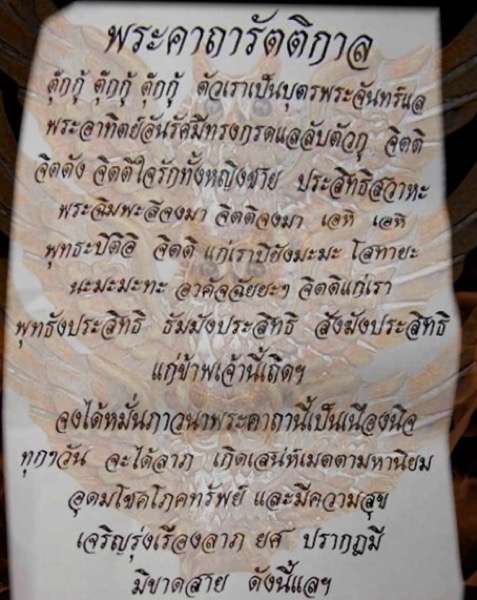 พระคาถารัตติกาล
ตุ๊กกู้ ตุ๊กกู้ ตุ๊กกู้ ตัวเราเป็นบุตรพระจันทร์แล
พระอาทิตย์อันรัศมีทรงกรดแลลับตัวกู จิตติ
จิตตัง จิตตีใจรักทั้งหญิงชาย ประสิทธิสวาหะ
พระฉิมพะลีจงมา จิตติจงมา เอหิ เอหิ
พุทธะปิติอิ จิตติ แก่เราปิยังมะมะ โสทายะ
นะมะมะทะ อวคัจฉัยยะฯ จิตติแก่เรา
พุทธังประสิทธิ ธัมมังประสิทธิ สังฆังประสิทธิ
แก่ข้าพเจ้านี้เถิดฯ
จงได้หมั่นภาวนาพระคาถานี้เป็นเนืองนิจ
ทุกๆวัน จะได้ลาภ เกิดเสน่ห์เมตตามหานิยม
อุดมโชคโภคทรัพย์ และมีความสุข
เจริญรุ่งเรืองลาภ ยศ ปรากฏมี
มิขาดสาย ดังนี้แลฯ